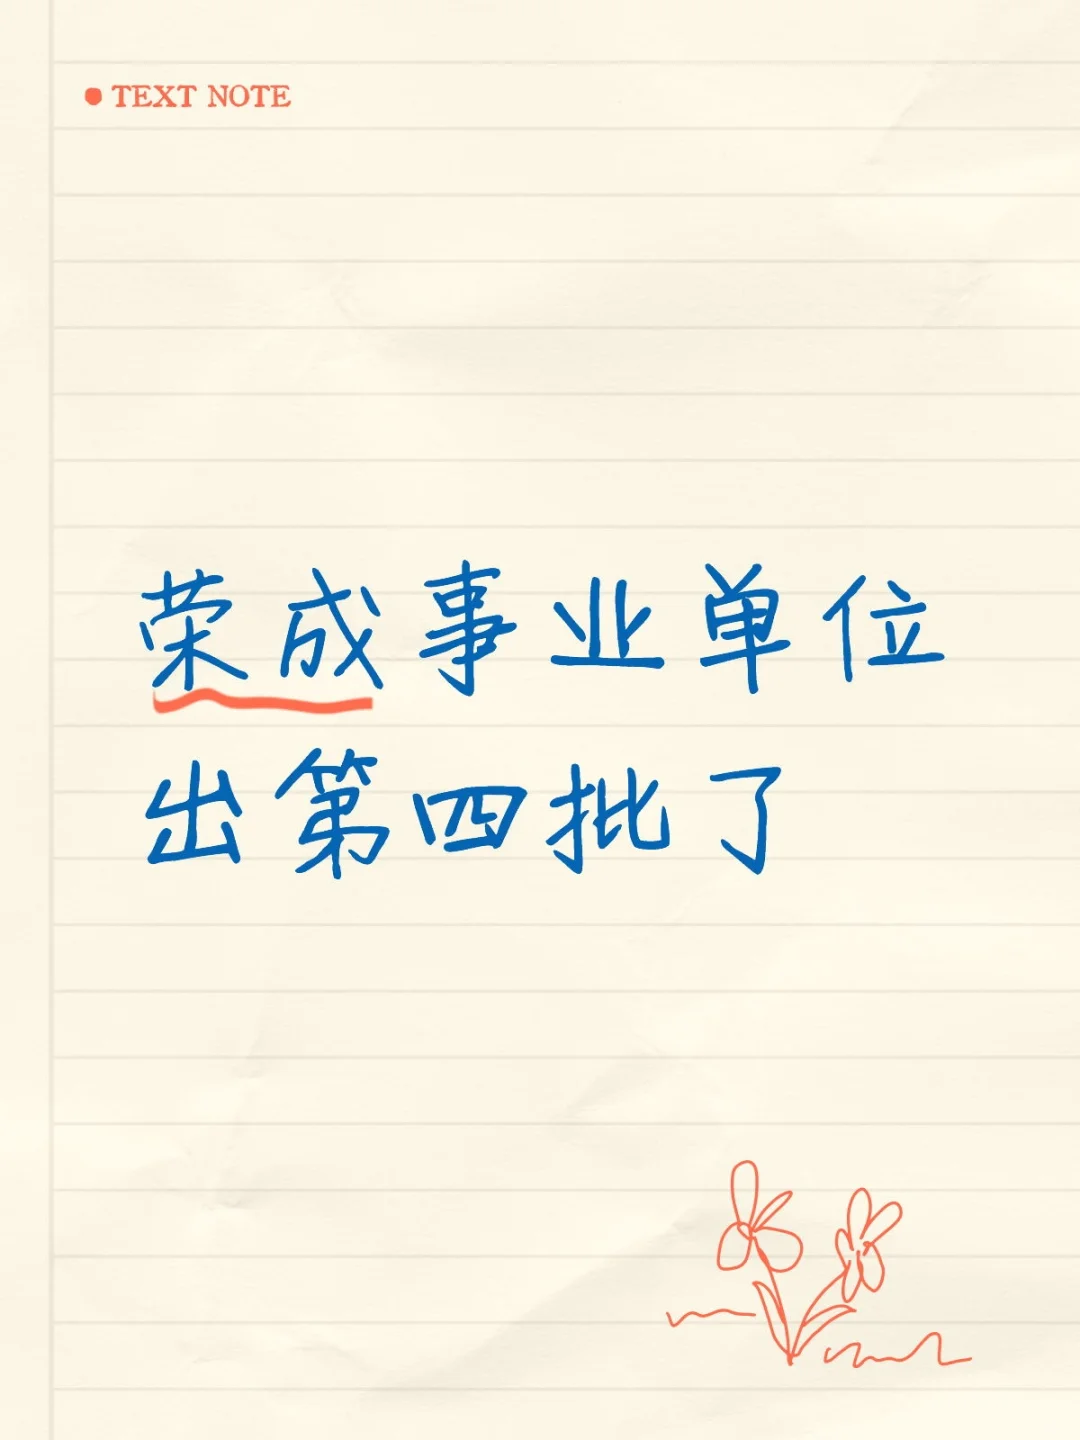 TEXT NOTE
荣成事业单位
出第四批了